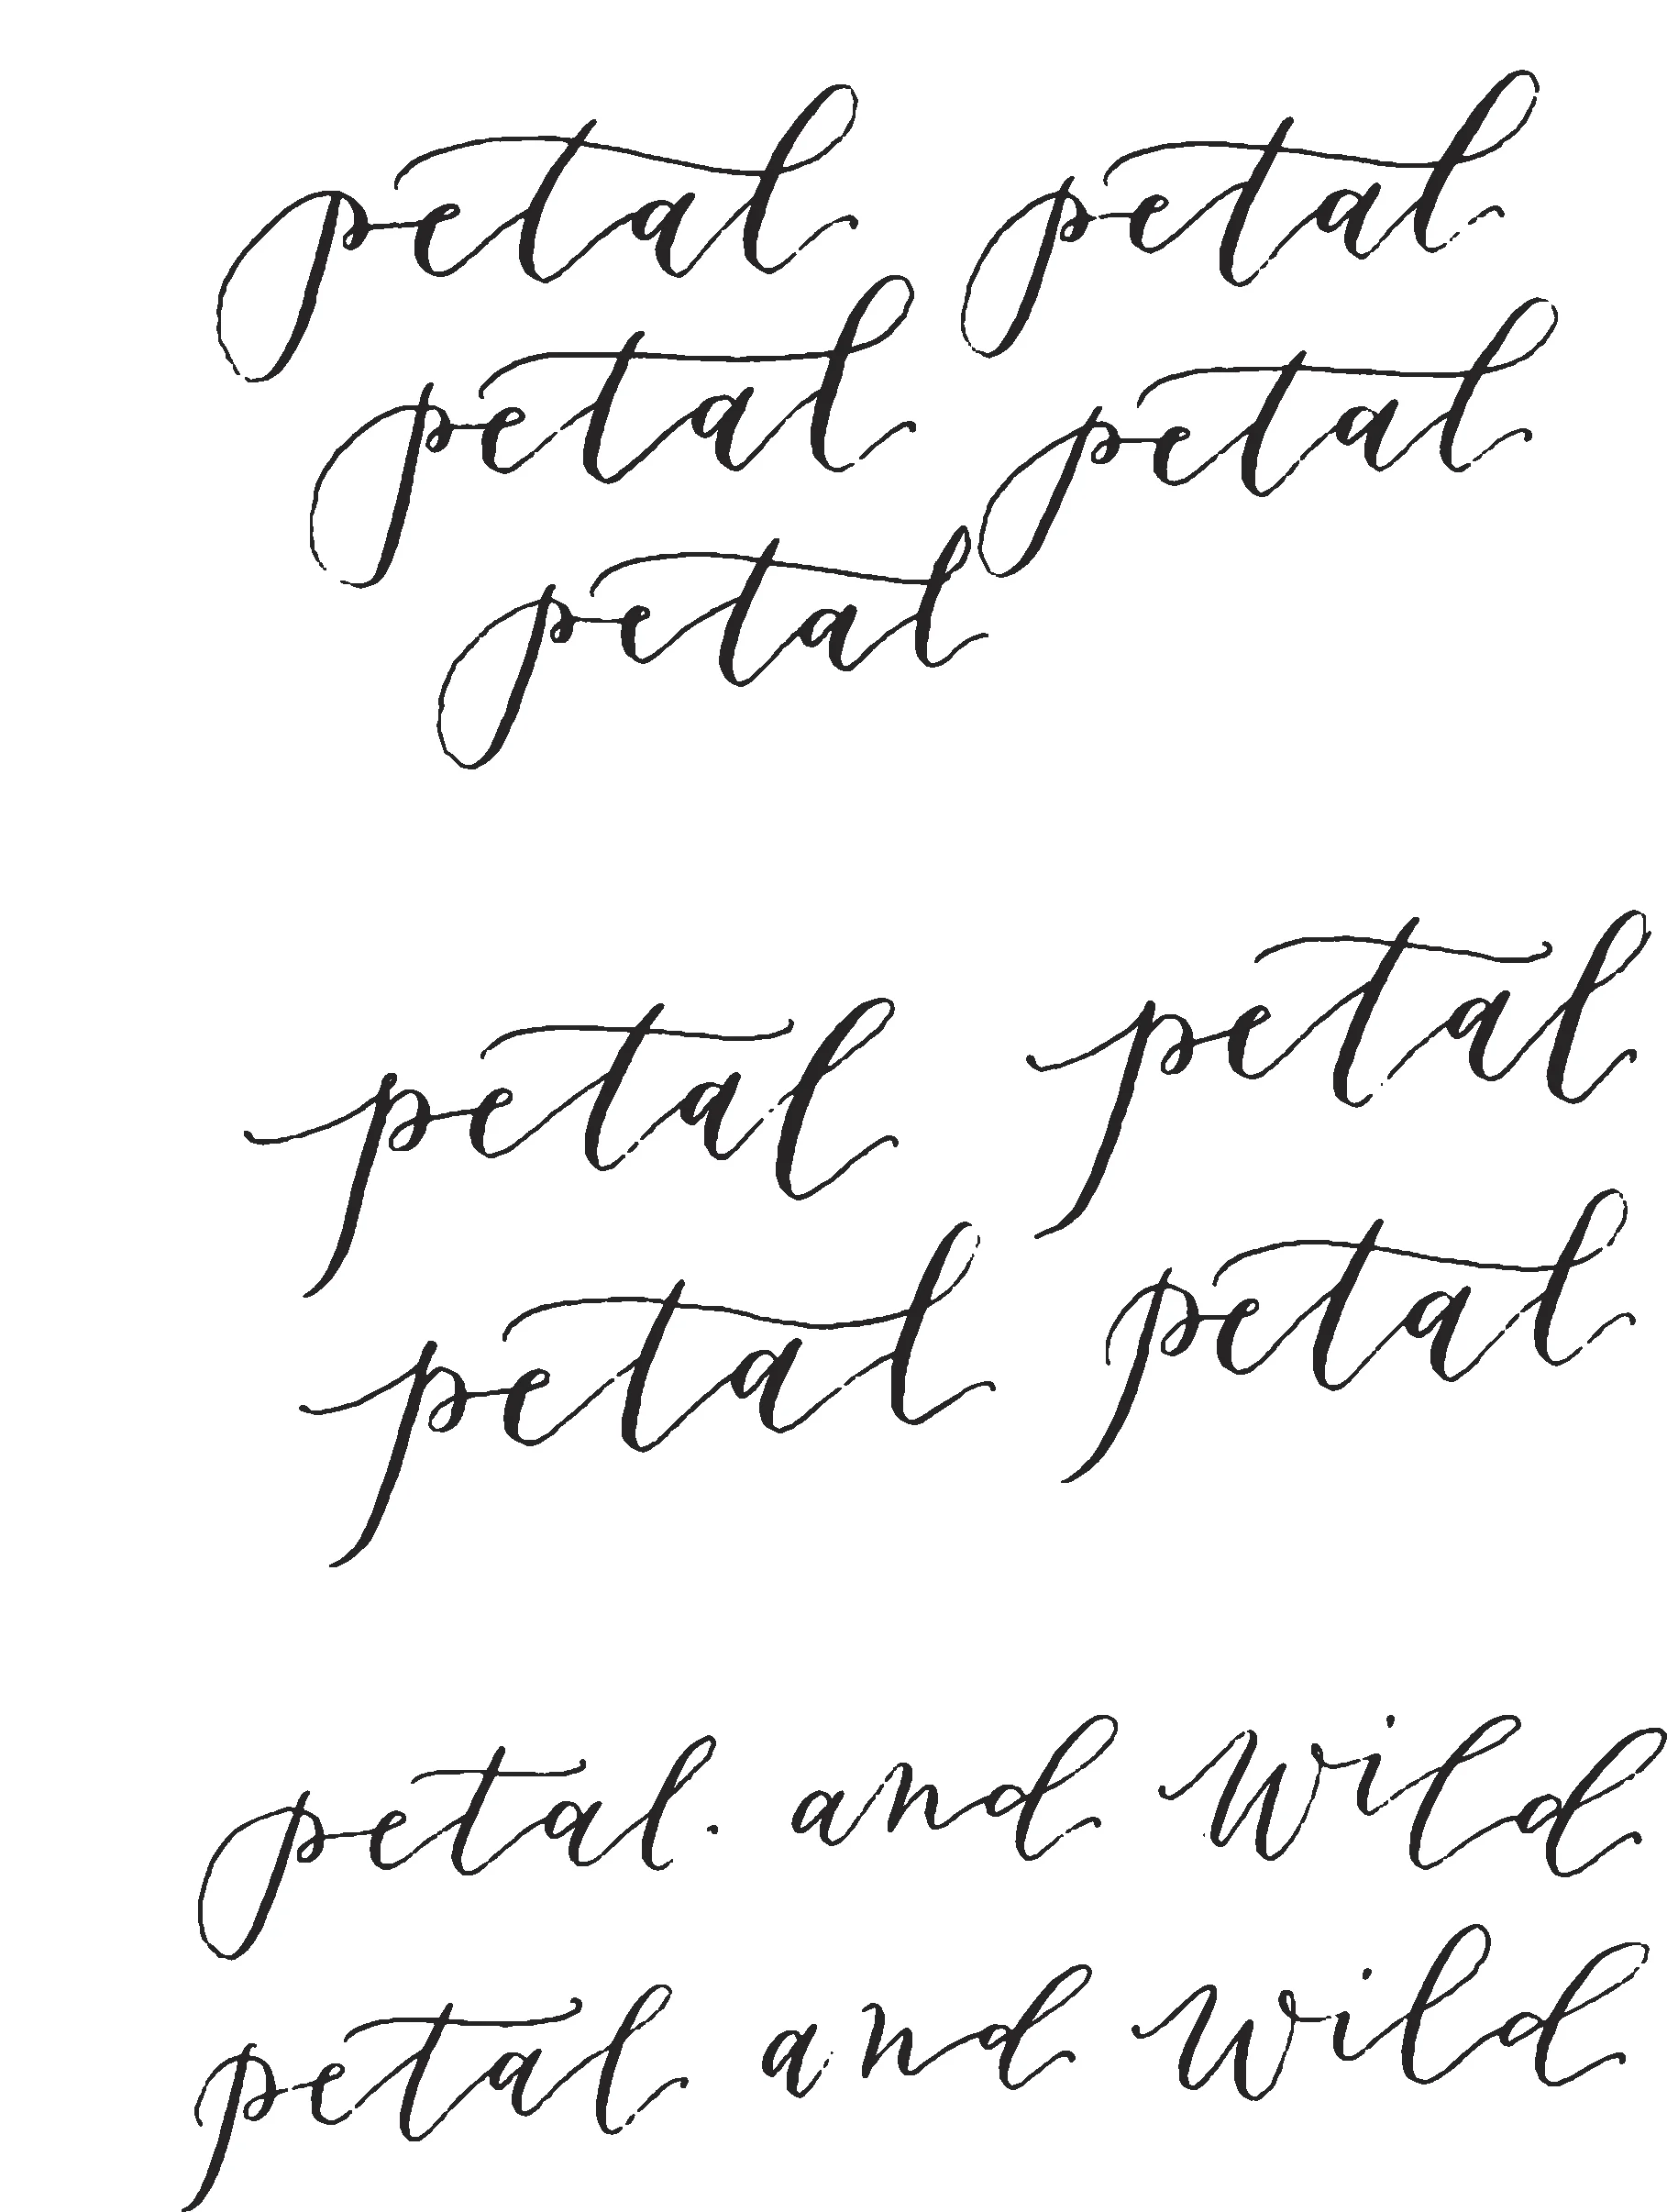 petal petal
petal petal
petal
petal petal
petal petal
petal and wild
petal and wild